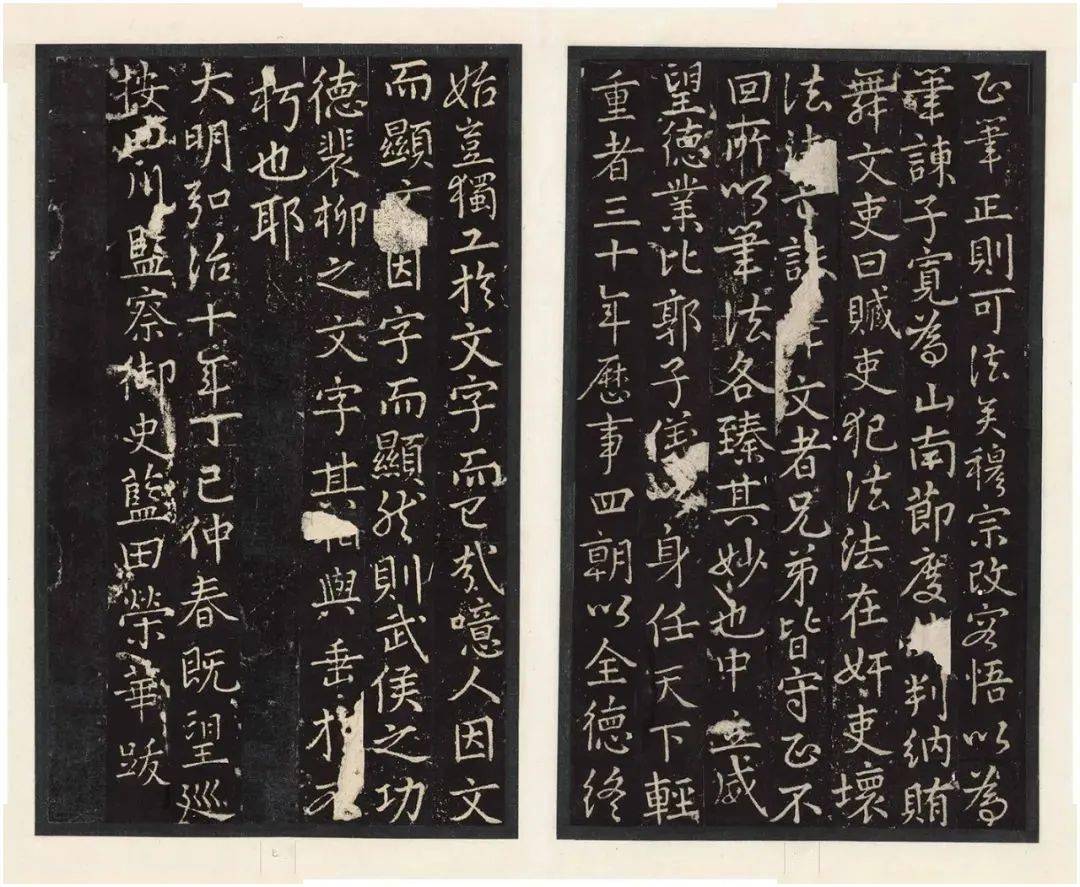 正筆正則可法矣穆宗改容悟以為
筆諫子寬為山南節度判納賄
舞文吏曰贓吏犯法法在奸吏壞
法法亡誅舞文者兄弟皆守正不
回所以筆法各臻其妙也中立威
望德業比郭子儀身任天下輕
重者三十年歷事四朝以全德終
始豈獨工於文字而已哉噫人因文
而顯文因字而顯然則武侯之功
德裴柳之文字其相與垂於不
朽也耶
大明弘治十年丁巳仲春既望巡
按四川監察御史藍田榮華跋